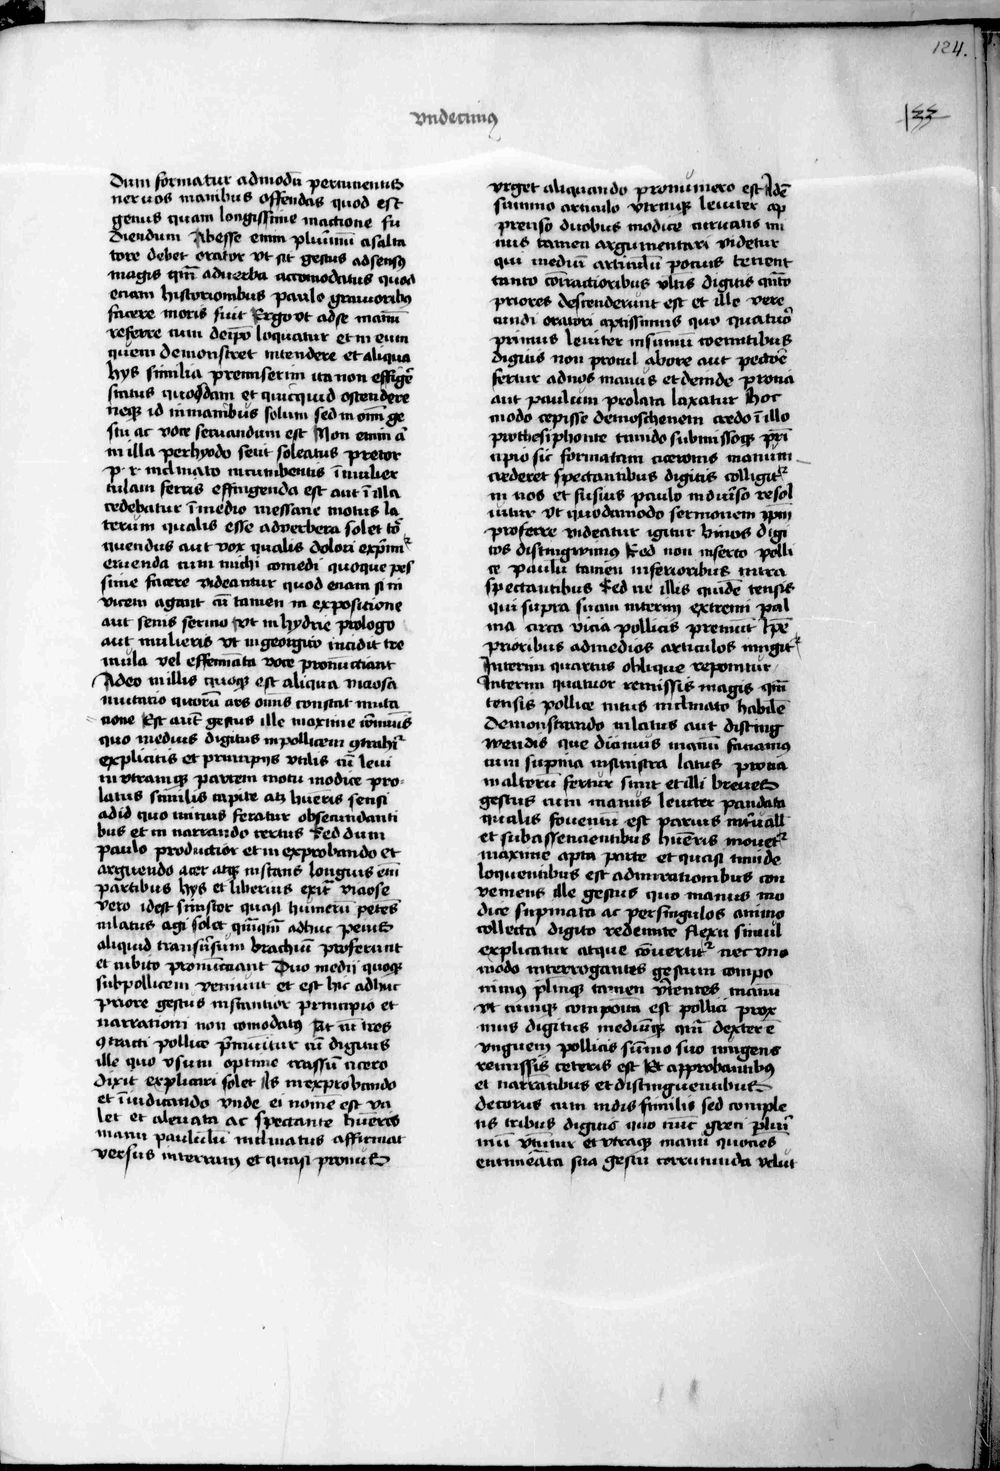 124.
vndecimꝰ
133
Dum formatur admodū pertinentis
neruos manibus offendas quod est
genus quam longissime inactione fu
Diendum Abesse enim plurimū asalta
tore debet orator vt sit gestus adsensꝰ
magis qm̄ aduerba accomodatus quod
etiam histrionibus paulo grauioribꝰ
facere moris fuit Ergo vt adse manū
referre cum deip̄o loquatur et in eum
quem demonstret intendere et aliqua
hys similia premiserim ita non effigē
status quosdam et quicquid ostendere
neqꝫ id inmanibus solum sed in om̄i ge
stu ac voce seruandum est Non enim ā
in illa perhyodo setit soleatus pretor
p· r· inclinato incumbentis ī mulier
culam ferris effingenda est aut ī illa
cedebatur ī medio messane motus la
terum qualis esse adverbera solet tō
quendus aut vox qualis dolori exp̄mit᷑
eruenda cum michi comedi quoque pes
sime facere videantur quod etiam si in
vicem agant cū tamen in expositione
aut senis sermo vt in hydrie prologo
aut mulieris vt in georguo incidit tre
mula vel effeminata voce pronuctiant
Adeo in illis quoqꝫ est aliqua viciosa
imitatio quorū ars om̄is constat imita
tione Est aut̄ gestus ille maxime cōmunis
quo medius digitus inpollicem ꝯtrahit᷑
explicitis et principijs vtilis cū leui
in vtramqꝫ partem motu modice pro-
latus similis capite atqꝫ humeris sensi
adid quo manus feratur obsecundanti
bus et in narrando certus Sed dum
paulo productior et in exprobando et
arguendo acer atqꝫ instans longius em̄
partibus hys et liberius exit᷑ viciose
vero idest sinistor quasi humerū petens
inlatus agi solet qm̄qm̄ adhuc peius
aliquid transuersum brachiū proferunt
et cubito pronūctiant Duo medii quoqꝫ
subpollicem veniunt et est hic adhuc
priore gestus instantior principio et
narrationi non comodatꝰ At cū tres
ꝯtracti pollice p̄mūtur cū digitus
ille quo vsum optime crassū cicero
dixit explicari solet Is inexprobando
et ī iudicando vnde ei nomē est va
let et aleuata ac spectante humeris
manu paululū inclinatus affirmat
versus interram et quasi pronus
vrget aliquando pronumero est Idē
summo articulo vtrimqꝫ leuiter ap
prenso duobus modice curuatis mi
nus tamen argumentari videtur
qui mediū articulū potius tenent
tanto cōtractioribus vltis digitis qm̄to
priores descenderunt est et ille vere
cundi oratori aptissimus quo quatuor᷑
primus leuiter insummū coeuntibus
digitis non procul abore aut pectore
fertur adnos manus et deinde prona
aut paulum prolata laxatur hoc
modo cepisse demoschenem credo ī illo
prothesiphonte timido submissoqꝫ pri
cipio sic formatam ciceronis manum
crederet spectantibus digitis colligit᷑
in nos et fusius paulo indiuerso resol
uitur vt quodamodo sermonem ip̄m
proferre videatur igitur binos digi
tos distingwimꝰ Sed non inserto polli
ce paulū tamen inferioribus intra
spectantibus Sed ne illis quidē tensis
qui supra sunt interim extremi pal
ma circa vicia pollicis premūt Ip̄e
prioribus admedios articulos iungit᷑
Interim quartus oblique reponitur
Interim quatuor remissis magis qm̄
tensis pollice intus inclinato habilē
Demonstrando inlatus aut disting
wendis que dicimus manū faciamꝰ
cum supina insinistra latus prona
in alterū fertur sunt et illi breues
gestus cum manus leuiter pandata
qualis fouentū est paruis interuall
et subassencientibus humeris mouet᷑
maxime apta parte et quasi timide
loquentibus est admirationibus con
veniens ille gestus quo manus mo
dice supinata ac persingulos animo
collecta digito redeunte flexu simul
explicatur atque cōuertit᷑ nec vno
modo interrogantes gestum compo
nimꝰ plinqꝫ tamen vtentes manu
vt cunqꝫ composita est pollici prox
imus digitus mediūqꝫ qm̄ dexter ē
vnguem pollicis sūmo suo iungens
remissis ceteris est Et approbantibꝰ
et narrātibus et distinguentibus
decorus cum indis similis sed comple
tis tribus digitis quo nūc greci pluri
mū vtuntur et vtraqꝫ manū quoties
entimeāta sua gestu corrutunda velut